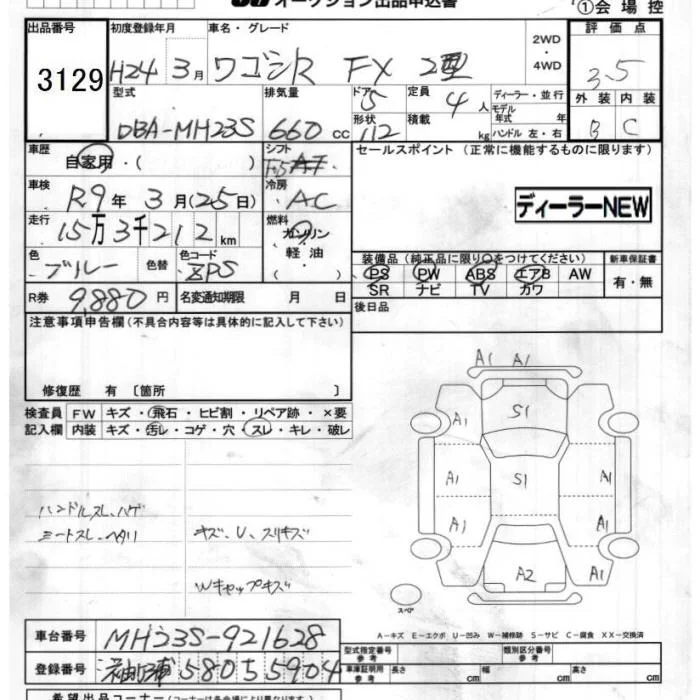 オークション出品申込書 ①会場控
出品番号 3129
初度登録年月 H24 3月
車名・グレード ワゴンR FX 2型
2WD・4WD
評価点 3.5
外装 B 内装 C
型式 DBA-MH23S
排気量 660cc
ドア形状 5 112
定員 4人
積載 kg
ディーラー・並行
モデル年式 年
ハンドル 左・右
車歴 自家用・( )
シフト F5AT
セールスポイント (正常に機能するものに限ります)
車検 R9年 3月(25日)
冷房 AC
ディーラーNEW
走行 15万3千212km
燃料 ガソリン 軽油・( )
色 ブルー 色替 色コード ZPS
装備品(純正品に限り○をつけてください) 新車保証書
PS PW ABS エアB AW 有・無
SR ナビ TV カワ
R券 9,880円 名変通知期限 月 日
後日品
注意事項申告欄(不具合内容等は具体的に記入して下さい)
修復歴 有 〔箇所 〕
検査員記入欄 FW キズ・飛石・ヒビ割・リペア跡・×要
内装 キズ・汚レ・コゲ・穴・スレ・キレ・破レ
ハンドルスレ、ハゲ
シートスレ、ヘタリ
キズ、U、スリキズ
Wキャップキズ
A1 A1
S1
A1
A1 S1 A1
A1 A1
A2 A1
スペア
A-キズ E-エクボ U-凹み W-補修跡 S-サビ C-腐食 XX-交換済
車台番号 MH23S-921628
型式指定番号 参考 類別区分番号 参考
登録番号 袖ヶ浦 580 5 5904
車庫証明用 参考 長さ cm 幅 cm 高さ cm
希望出品コーナー (コーナーは各会場により異なります)